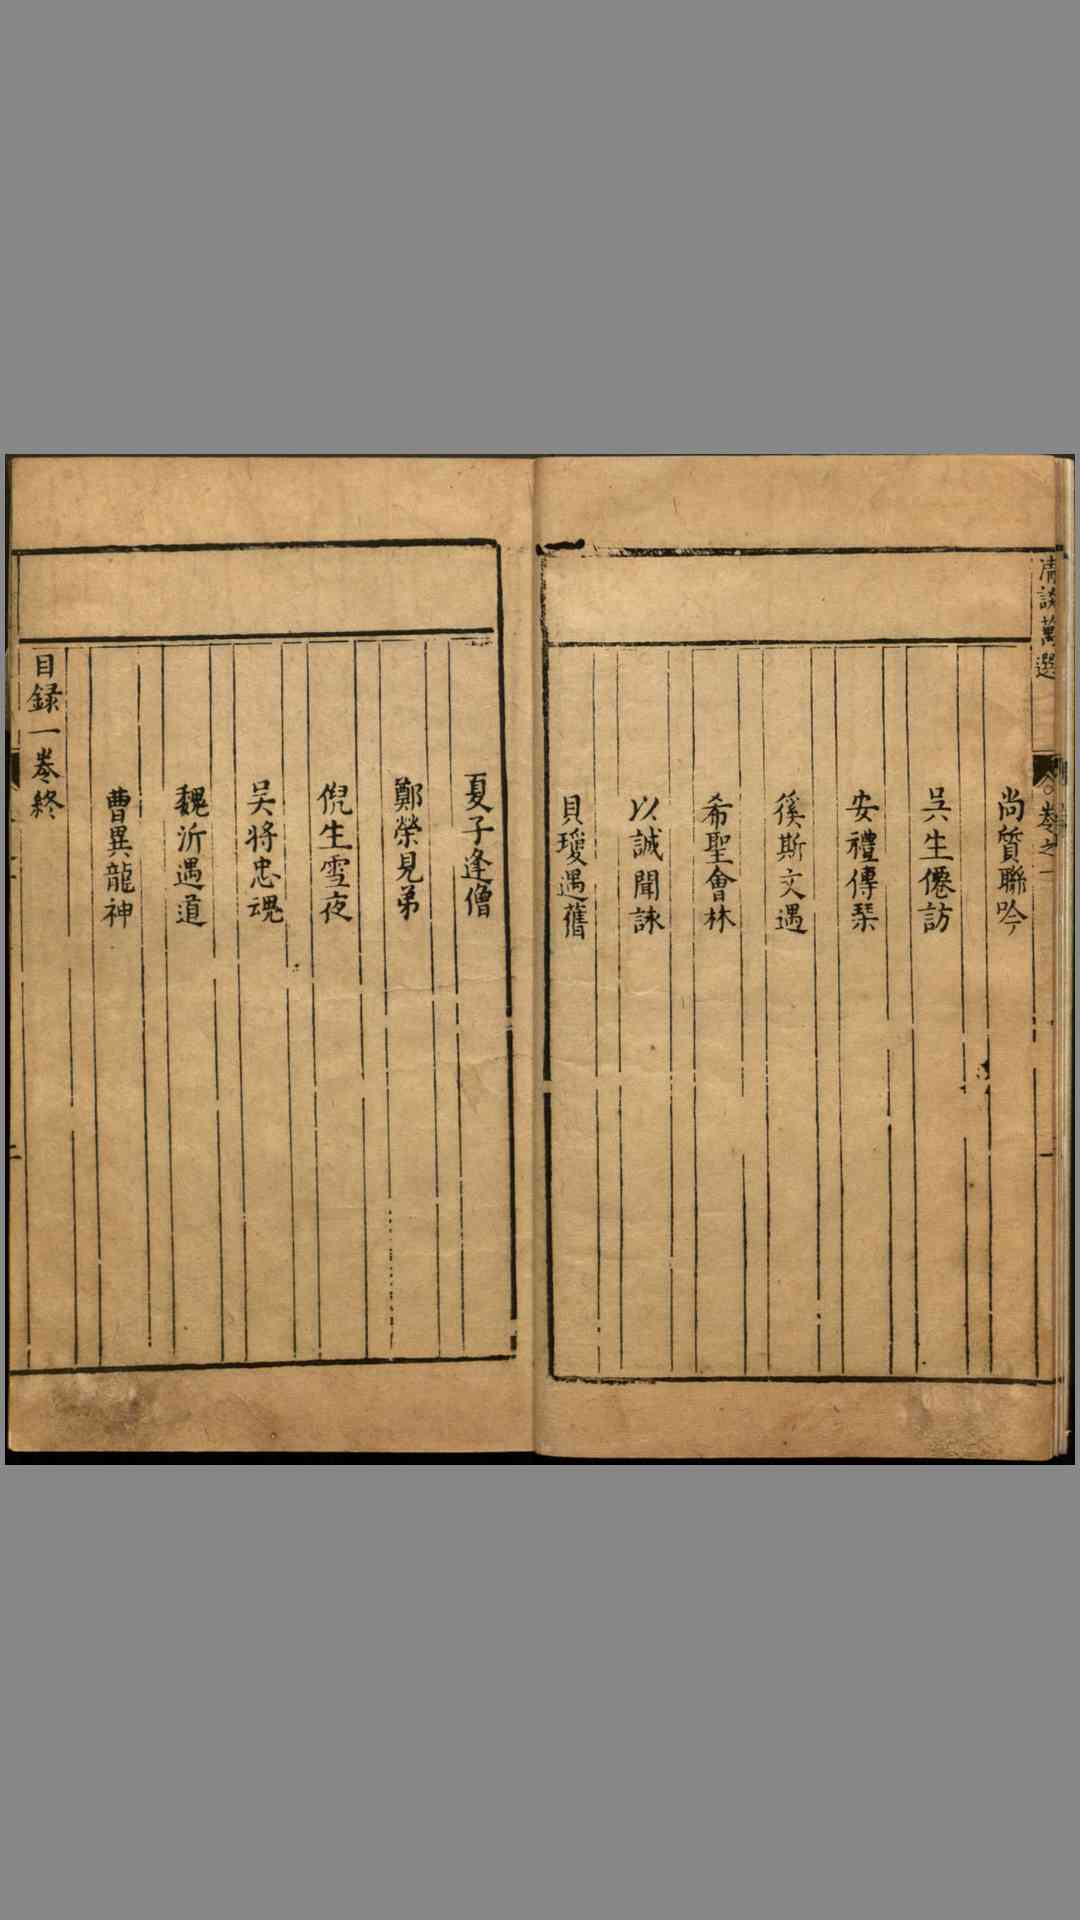 清談萬選
卷之一
一
尚質聯吟
吳生僊訪
安禮傳琴
徯斯文遇
希聖會林
以誠聞詠
貝瓊遇舊
夏子逢僧
鄭榮見弟
倪生雪夜
吴将忠魂
魏沂遇道
曹異龍神
目録一卷終